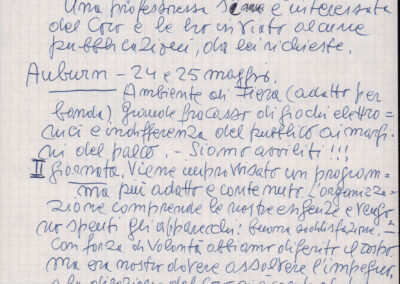 Una professoressa è interessata
del Coro e le ho inviato alcune
pubblicazioni, da lei richieste.
Auburn - 24 e 25 maggio.
Ambiente di Fiera (adatto per
banda). Grande fracasso di giochi elettro=
nici e indifferenza del pubblico ai margi=
ni del palco. - Siamo avviliti!!!
II giornata. Viene improvvisato un program=
ma più adatto e contenuto. L'organizza=
zione comprende le nostre esigenze e vengo=
no spenti gli apparecchi: buona soddisfazione, -
Con forza di volontà abbiamo difeso il nostro
ma era nostro dovere assolvere l'impegno,